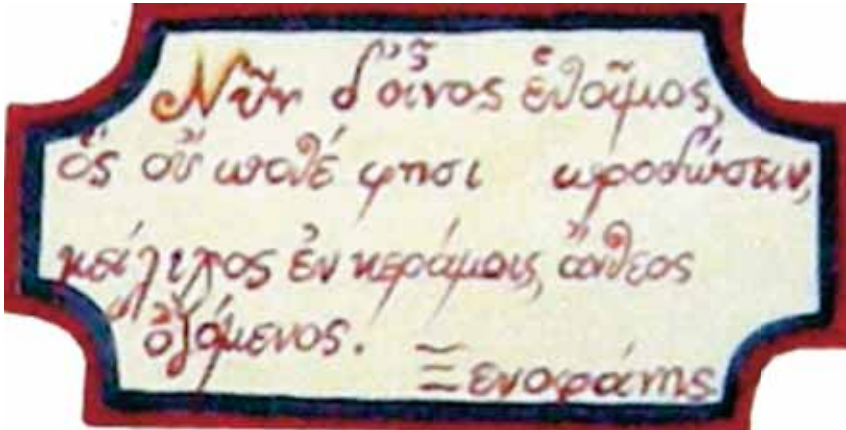 Νῦν δ' οἶνος ἑτοῖμος,
ὃς οὔ ποτέ φησι προδώσειν,
μείλιχος ἐν κεράμοις, ἄνθεος
ὀζόμενος.
Ξενοφάνης